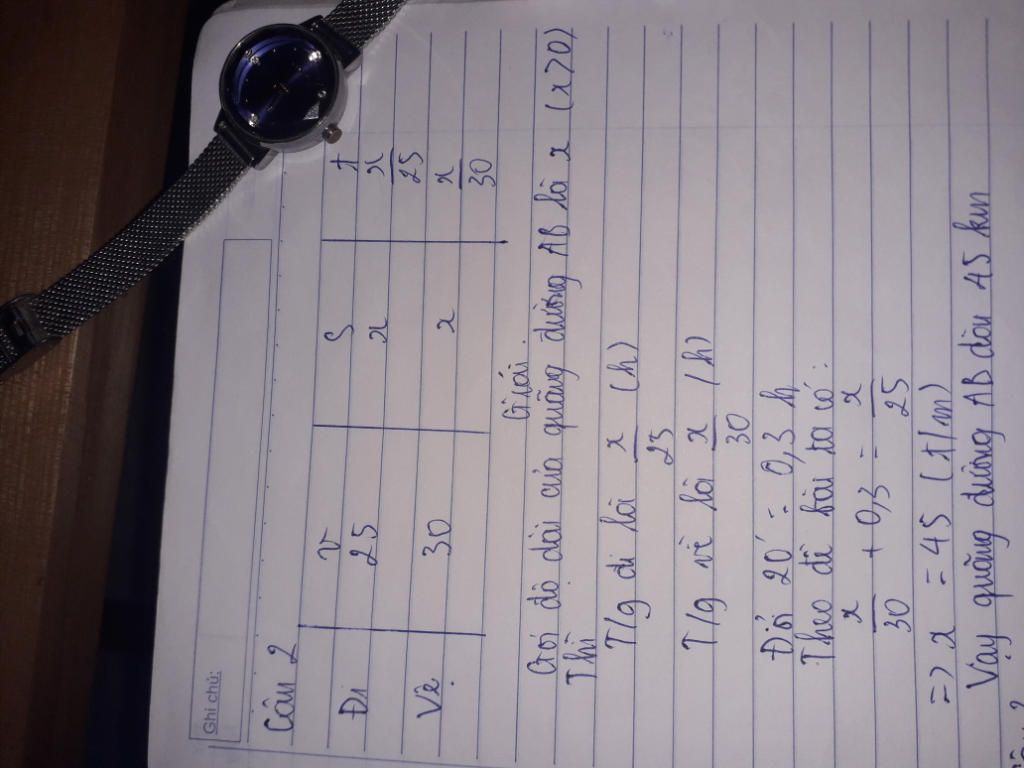 Ghi chú:
Câu 2
v S t
Đi 25 x x/25
Về 30 x x/30
Giải.
Gọi độ dài của quãng đường AB là x (x>0)
Thì
T/g đi là x/25 (h)
T/g về là x/30 (h)
Đổi 20' = 0,3 h
Theo đề bài ta có:
x/30 + 0,3 = x/25
=> x = 45 (t/m)
Vậy quãng đường AB dài 45 km